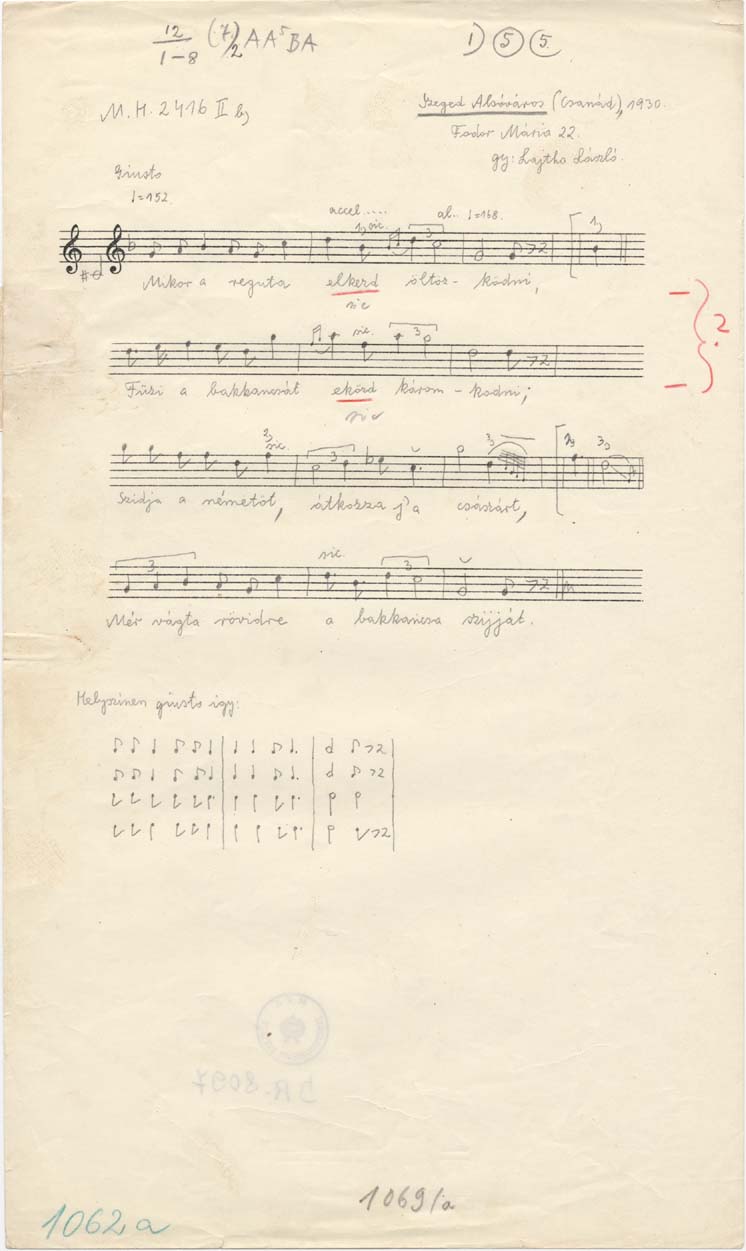 12/1-8 (7)/2 AA⁵BA 1) 5 5
M.H. 2416 II b)
Szeged Alsóváros (Csanád), 1930.
Fodor Mária 22.
gy: Lajtha László.
Giusto
♩=152.
accel .... al.. ♩=168.
1) sic. 3 1)
Mikor a reguta elkezd öltöz- ködni,
sic
sic. 3
2.
Fűzi a bakkancsát eközd károm- kodni;
sic
2) sic. 3 3) 2) 3)
Szidja a németöt, átkozza j'a császárt,
3 sic. 3
Mér vágta rövidre a bakkancsa szijját.
Helyszinen giusto igy:
DR-8097
1069/a
1062a